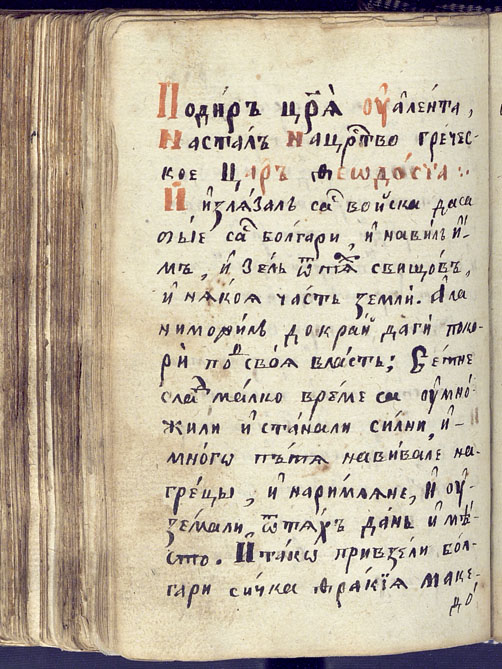 Подиръ цр҃ѧ̀ оуале́нта,
Насталъ нацр҃тво гречес-
кое Царь ѳеѡдо́сїа:
И҆ и҆злѧ́залъ са̾ во́йска даса
бы́е са̾ болгари, и҆ навилъ и҆́-
мъ, и҆ зе́лъ ѿтѧ́хъ свищо́въ,
и҆ нѧко́ѧ часть земли̇̀. А҆ла
ниможи́лъ докра́й даги поко-
ри̇̀ по́дсвоѧ вла́сть; Се́тне
следма́лко вре́ме са оу҆мно́-
жили и҆ ста́нали си́лни, и҆-
мно́гѡ пѫтѧ нави́вале на-
грецы, и҆ наримлѧне, и҆ оу҆-
зе́мали, ѿтѧ́хъ да́нь и҆ мѣ́-
сто. И҆та́кѡ привзе́ли бо́л-
гари си́чка ѳракі́ѧ маке-
до́